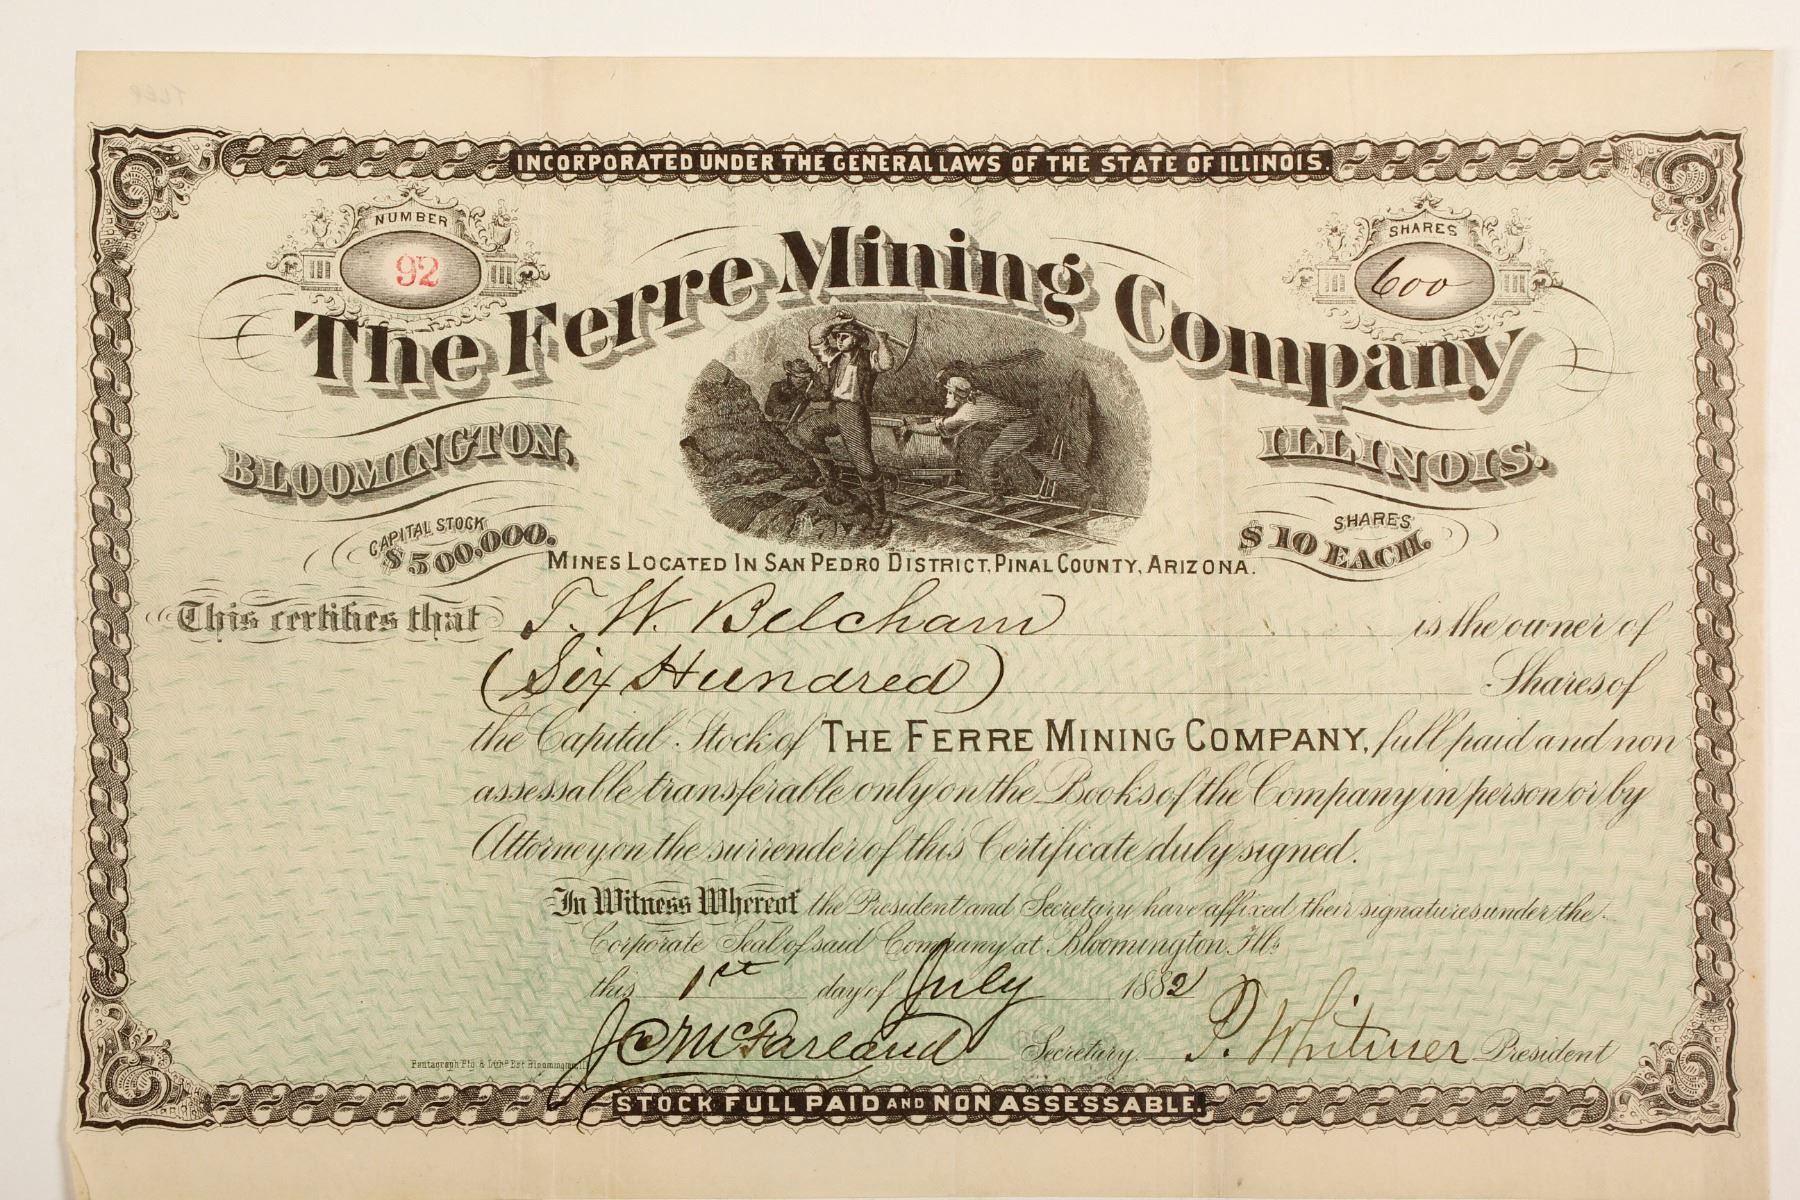 INCORPORATED UNDER THE GENERAL LAWS OF THE STATE OF ILLINOIS.
NUMBER
92
SHARES
600
The Ferre Mining Company
BLOOMINGTON, ILLINOIS.
CAPITAL STOCK
$500,000.
SHARES
$10 EACH.
MINES LOCATED IN SAN PEDRO DISTRICT, PINAL COUNTY, ARIZONA.
This certifies that T. W. Belcham is the owner of
(Six Hundred) Shares of
the Capital Stock of THE FERRE MINING COMPANY, full paid and non
assessable transferable only on the Books of the Company in person or by
Attorney on the surrender of this Certificate duly signed.
In Witness Whereof the President and Secretary have affixed their signatures under the
Corporate Seal of said Company at Bloomington, Ill.
this 1st day of July 1882
J C McFarland Secretary. P. Whitmer President
Pantagraph Ptg & Litho Est Bloomington, Ill
STOCK FULL PAID AND NON ASSESSABLE.